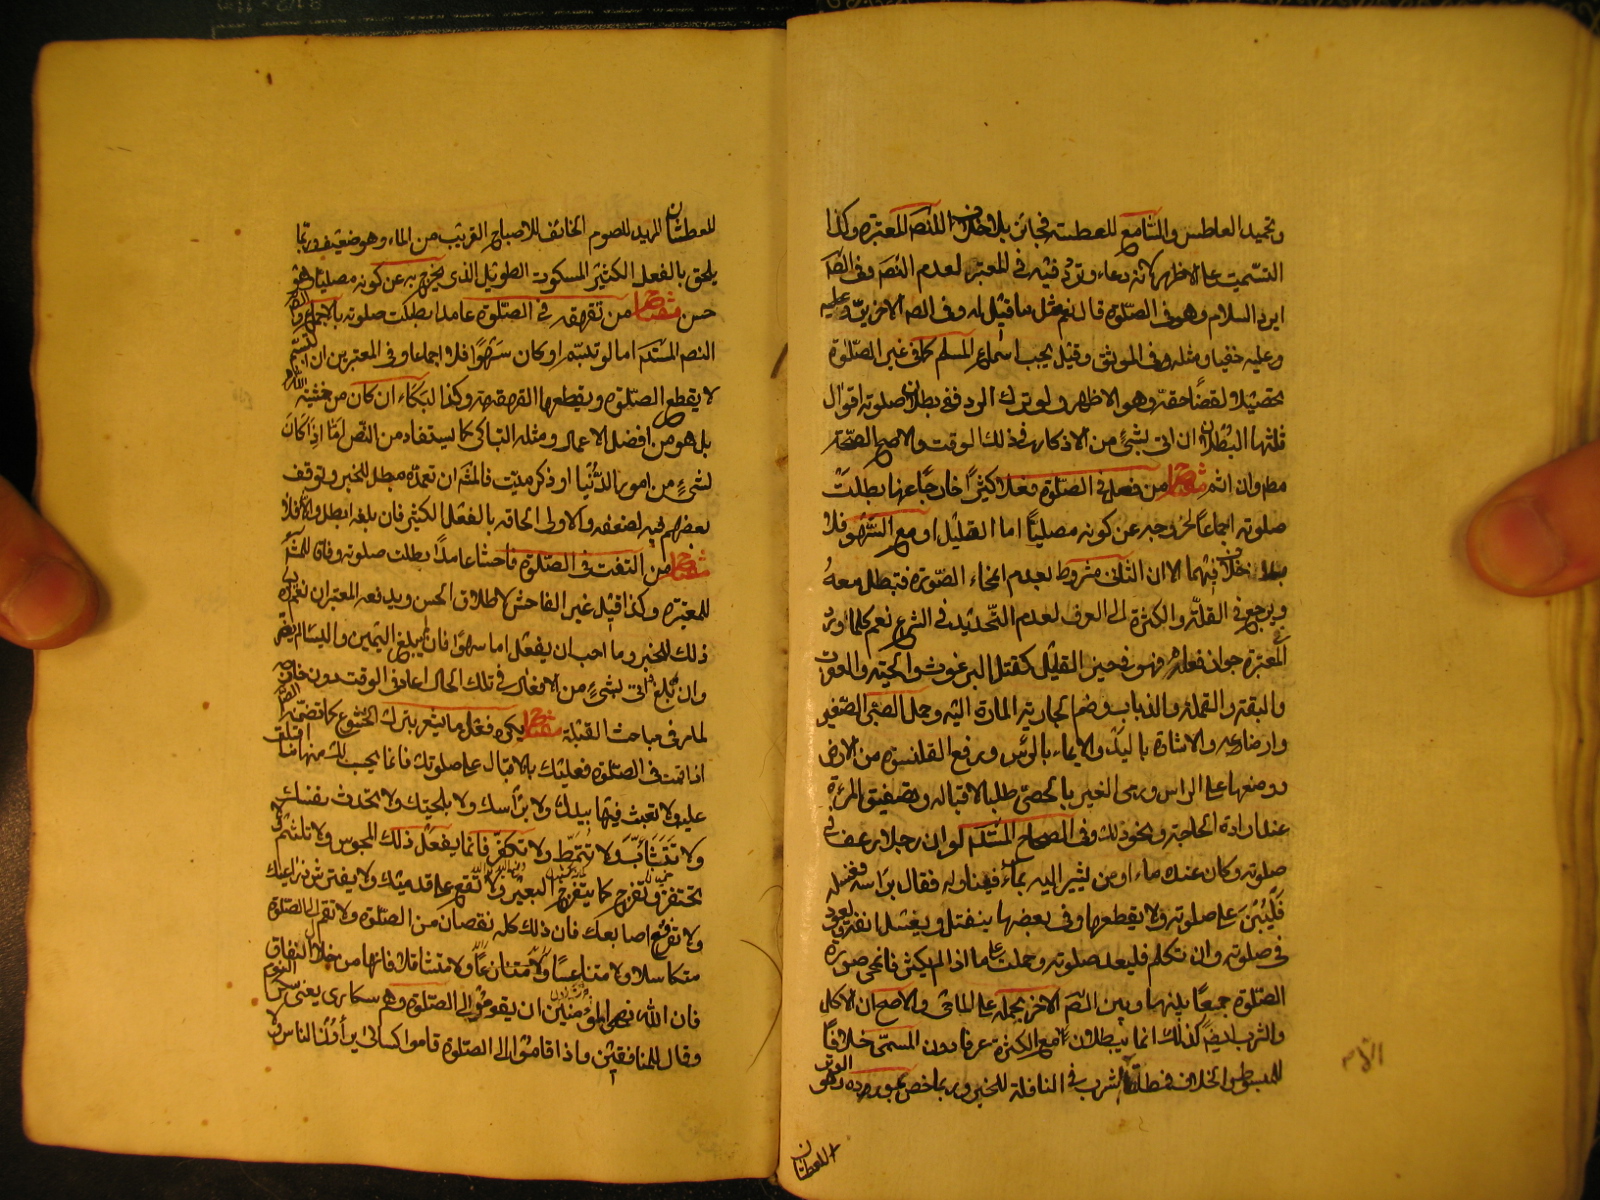 وتحميد العاطس والسامع للعطسة فجائز بلا خلاف للنص المعتبرة وكذا
التسميت على الاظهر لانه دعاء وتردد فيه في المعتبر لعدم النص وفى الصحاح
ايرد السلام وهو في الصلوة قال نعم مثل ما قيل له وفى الصحاح الاخر يرد عليه
وعليه خفيا ومثله في الموثق وقيل يجب اسماع المسلم كما في غير الصلوة
تحصيلا لقضاء حقه وهو الاظهر ولو ترك الرد ففي بطلان صلوته اقوال
ثلثها البطلان ان اتى بشئ من الاذكار في ذلك الوقت والاصح الصحة
مطم وان اثم مفتاح من فعل في الصلوة فعلا كثيرا خارجا عنها بطلت
صلوته اجماعا لخروجه عن كونه مصليا اما القليل او مع السهو فلا
بلا خلاف فيهما الا ان الثانى مشروط بعدم انمحاء الصورة فتبطل معه
ويرجع في القلة والكثرة الى العرف لعدم التحديد في الشرع نعم كلما ورد في
المعتبرة جواز فعله فهو في حيز القليل كقتل البرغوث والحية والعقرب
والبقة والقملة والذباب وضم الجارية المارة اليه وحمل الصبى الصغير
وارضاعه والاشارة باليد والايماء بالراس ورفع القلنسوة من الارض
ووضعها على الراس ورمى الغير بالحصى طلبا لاقباله وتصفيق المرءة
عند ارادة الحاجة ونحو ذلك وفى الصحاح المتقدم لو ان رجلا رعف في
صلوته وكان عنده ماء او من يشير اليه بماء فيناوله فقال براسه فغسله
فليبن على صلوته ولا يقطعها وفى بعضها ينفتل ويغسل انفه ويعود
في صلوته وان تكلم فليعد صلوته وحملت على ما اذا لم يكثر فانمحى صورة
الصلوة جمعا بينها وبين النص الاخر بحمله على الماحى والاصح ان الاكل
والشرب ايضا كذلك انما يبطلان مع الكثرة عرفا دون المسمى خلافا
للمبسوط والخلاف فمطلقا الشرب في النافلة للخبر وربما خص بمورده وهى الوتر
للعطشان
للعطشان المريد للصوم الخائف للاصباح القريب من الماء وهو ضعيف وربما
يلحق بالفعل الكثير السكوت الطويل الذى يخرج به عن كونه مصليا وهو
حسن مفتاح من تقهقه في الصلوة عامدا بطلت صلوته بالاجماع والصحاح
النص المستدم اما لو تبسم او كان سهوا فلا اجماعا وفى المعتبرين ان التبسم
لا يقطع الصلوة ويقطعها القهقهة وكذا البكاء ان كان من خشية الله
بل هو من افضل الاعمال ومثله التباكى كما يستفاد من النص اما اذا كان
لشئ من امور الدنيا او ذكر ميت فالمشهور ان تعمده مبطل للخبر وتوقف
بعضهم فيه لضعفه والاولى الحاقه بالفعل الكثير فان بلغه ابطل والا فلا
مفتاح من التفت في الصلوة فاحشا عامدا بطلت صلوته وفاقا للمش
للمعتبرة وكذا قيل غير الفاحش لاطلاق الحسن ويدفعه المعتبران نعم يكره
ذلك للخبر وما احب ان يفعل اما سهوا فان لم يبلغ اليمين واليسار لم يضر
وان بلغ واتى بشئ من الافعال في تلك الحال اعاد في الوقت دون خارجه
لما مر في مباحث القبلة مفتاح يكره فعل ما يشعر بترك الخشوع كما تضمنه الصحاح
اذا قمت في الصلوة فعليك بالاقبال على صلوتك فانما يحسب لك منها ما اقبلت
عليه ولا تعبث فيها بيدك ولا براسك ولا بلحيتك ولا تحدث نفسك
ولا تتثأب ولا تتمط ولا تكفر فانما يفعل ذلك المجوس ولا تلثم ولا
تحتفز وتفرج كما يتفرج البعير ولا تقع على قدميك ولا يفترش ذراعيك
ولا تفرقع اصابعك فان ذلك كله نقصان من الصلوة ولا تقم الى الصلوة
متكاسلا ولا متناعسا ولا متثاقلا فانها من خلال النفاق
فان الله نهى المؤمنين ان يقوموا الى الصلوة وهم سكارى يعنى سكر النوم
وقال للمنافقين واذا قاموا الى الصلوة قاموا كسالى يراؤن الناس